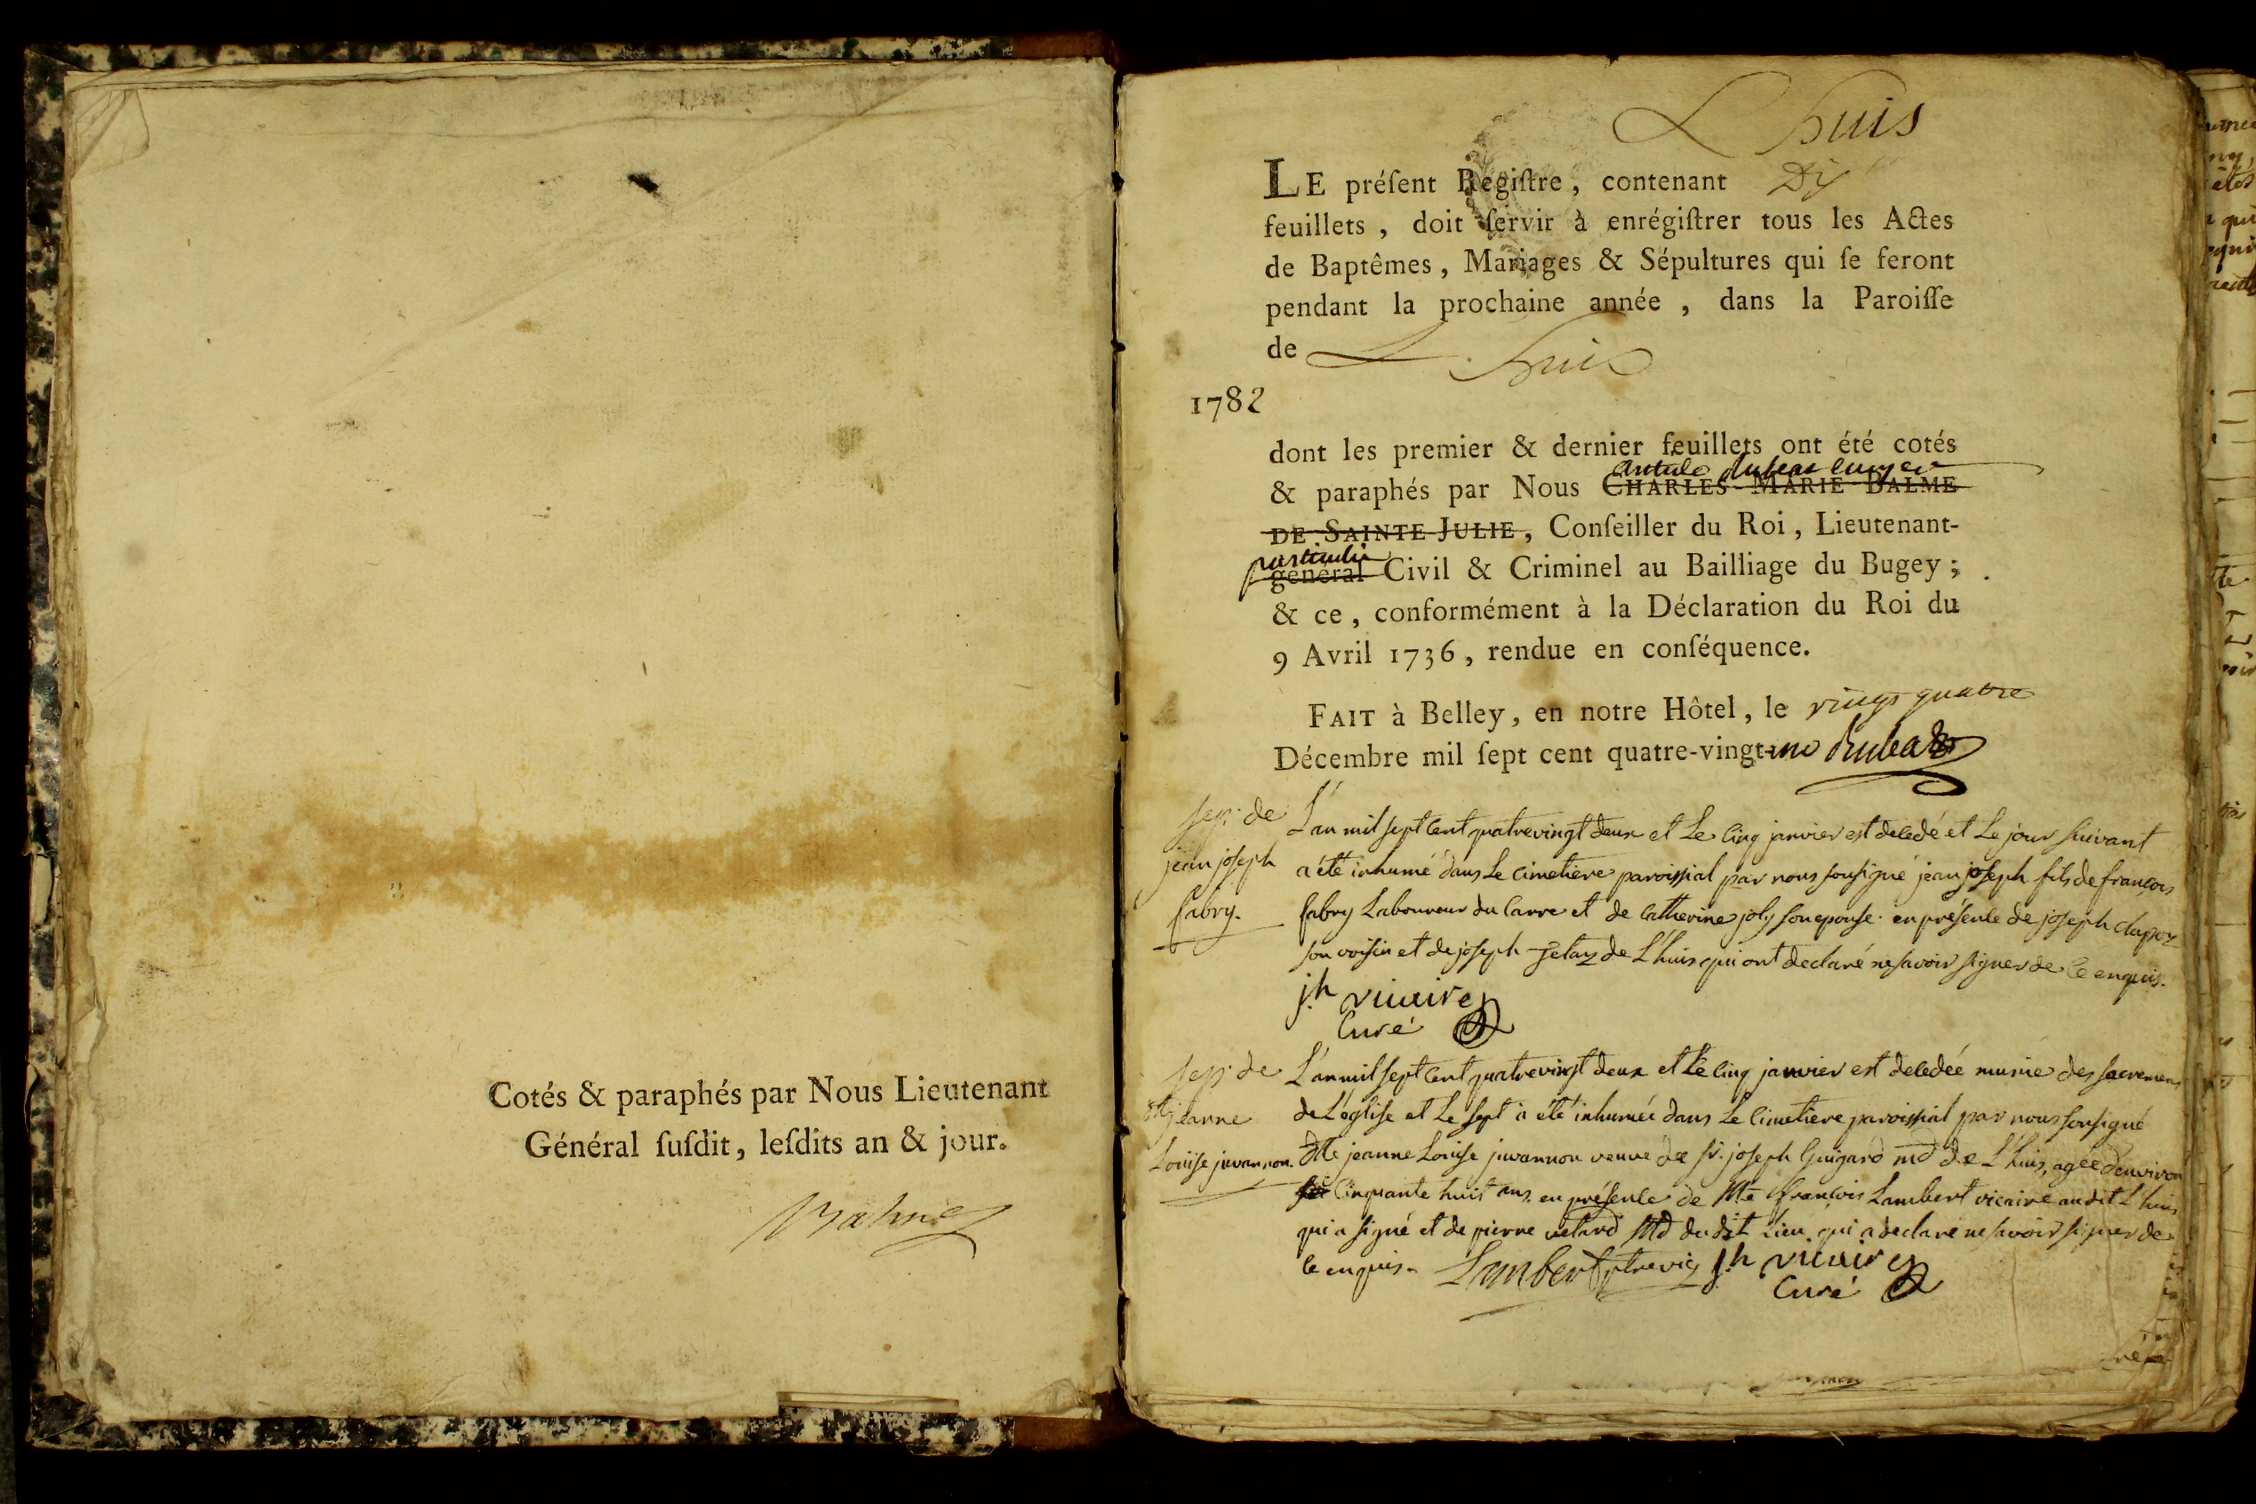 Cotés & paraphés par Nous Lieutenant
Général ſuſdit, leſdits an & jour.
Balme
L huis
LE préſent Regiſtre, contenant Dix
feuillets, doit ſervir à enrégiſtrer tous les Actes
de Baptêmes, Mariages & Sépultures qui ſe feront
pendant la prochaine année, dans la Paroiſſe
de L huis
1782
dont les premier & dernier feuillets ont été cotés
& paraphés par Nous CHARLES-MARIE BALME
DE SAINTE-JULIE, Conſeiller du Roi, Lieutenant-
particulier
général Civil & Criminel au Bailliage du Bugey;
& ce, conformément à la Déclaration du Roi du
9 Avril 1736, rendue en conſéquence.
FAIT à Belley, en notre Hôtel, le vingt quatre
Décembre mil ſept cent quatre-vingt-un
sep. de
jean joseph
fabry.
L'an mil sept cent quatrevingt deux et Le cinq janvier est decedé et Le jour suivant
a été inhumé dans Le cimetiere paroissial par nous sousigné jean joseph fils de françois
fabry Laboureur du Carre et de Catherine joly son epouse. en présence de joseph
son voisin et de joseph de L'huis qui ont declaré ne savoir signer de ce enquis.
j.h vicaire
Curé
sep. de
dlle jeanne
Louise juvannon.
L'an mil sept cent quatrevingt deux et Le cinq janvier est decedée munie des sacremens
de L'église et Le sept a été inhumée dans Le cimetiere paroissial par nous sousigné
dlle jeanne Louise juvannon veuve de sr. joseph Guigard md de L'huis, agée d'environ
cinquante huit ans. en présence de Me françois Lambert vicaire audit L'huis
qui a signé et de pierre Md du dit Lieu qui a declaré ne savoir signer de
ce enquis. Lambert ptre vic j.h vicaire
Curé